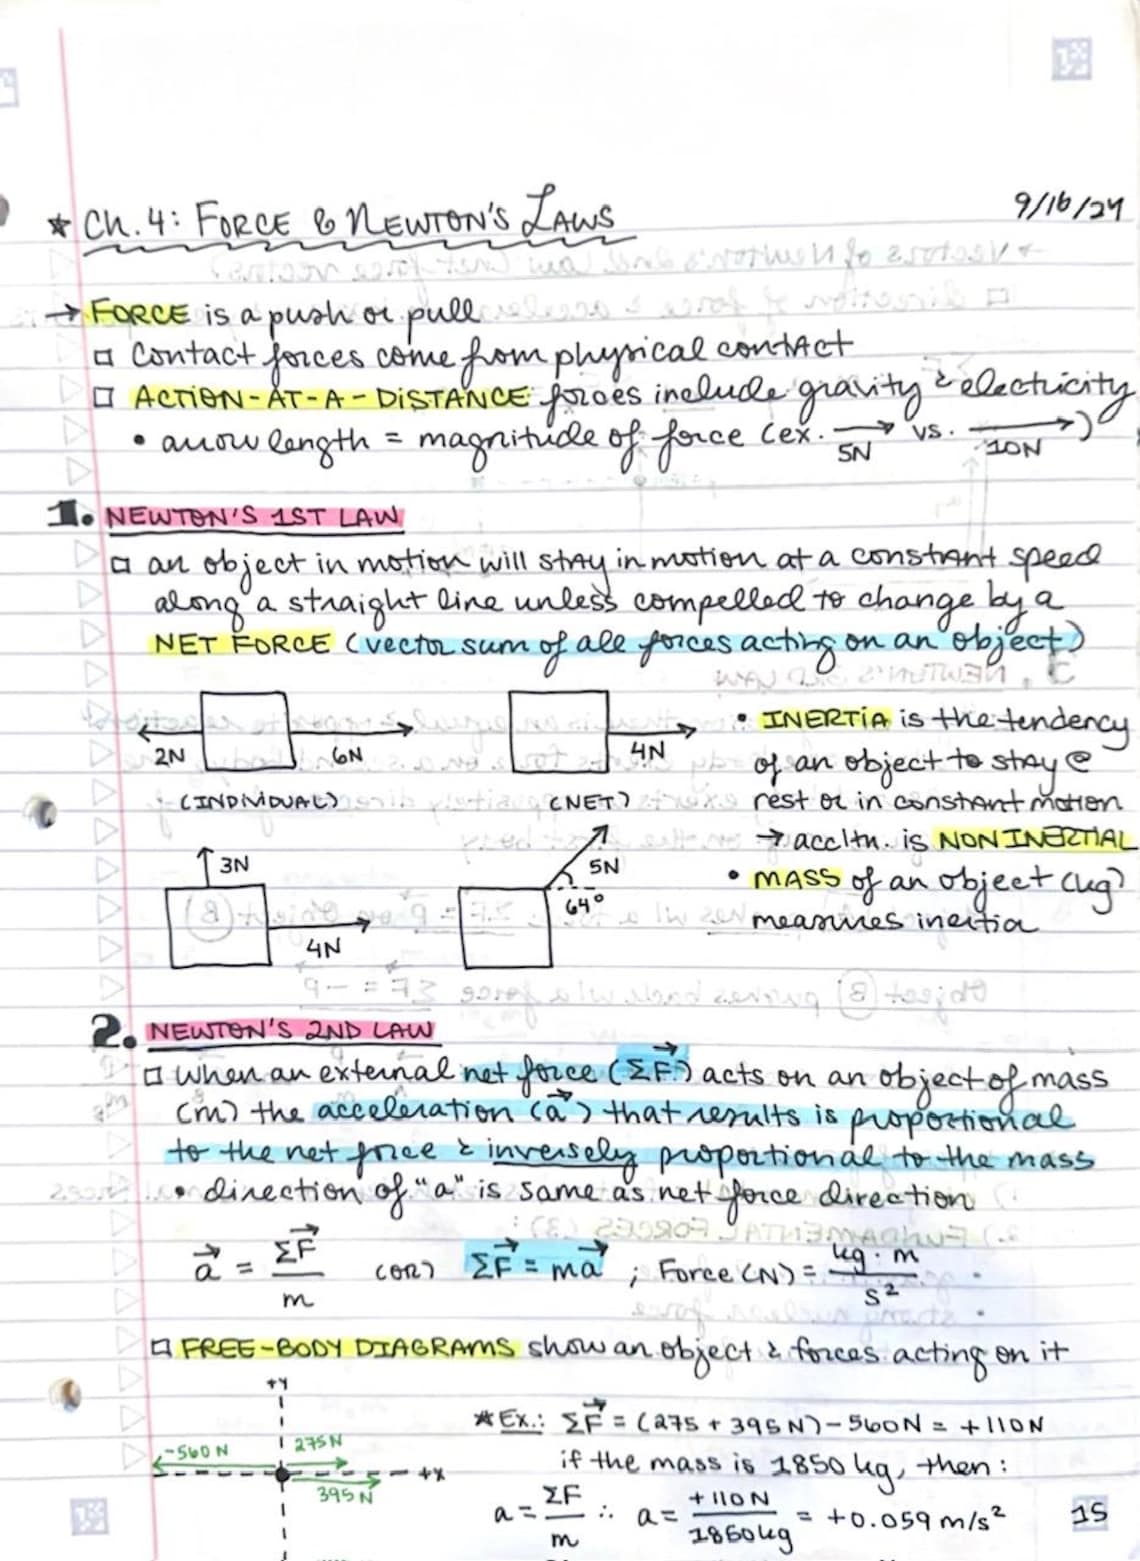 9/16/24
* Ch. 4: FORCE & NEWTON'S LAWS
→ FORCE is a push or pull
□ Contact forces come from physical contact
□ ACTION-AT-A-DISTANCE forces include gravity & electricity
• arrow length = magnitude of force (ex. → 5N vs. → 10N)
1. NEWTON'S 1ST LAW
□ an object in motion will stay in motion at a constant speed
along a straight line unless compelled to change by a
NET FORCE (vector sum of all forces acting on an object)
2N 6N
(INDIVIDUAL)
4N
(NET)
3N
4N
5N
64°
• INERTIA is the tendency
of an object to stay @
rest or in constant motion
→ accltn. is NONINERTIAL
• MASS of an object (kg)
measures inertia
2. NEWTON'S 2ND LAW
□ When an external net force (ΣF⃗) acts on an object of mass
(m) the acceleration (a⃗) that results is proportional
to the net force & inversely proportional to the mass
• direction of "a" is same as net force direction
a⃗ = ΣF⃗ / m (OR) ΣF⃗ = ma⃗ ; Force (N) = kg · m / s²
□ FREE-BODY DIAGRAMS show an object & forces acting on it
+Y
-560 N
275N
+x
395N
* Ex.: ΣF⃗ = (275 + 395N) - 560N = +110N
if the mass is 1850 kg, then:
a = ΣF / m ∴ a = +110N / 1850kg = +0.059 m/s²
15